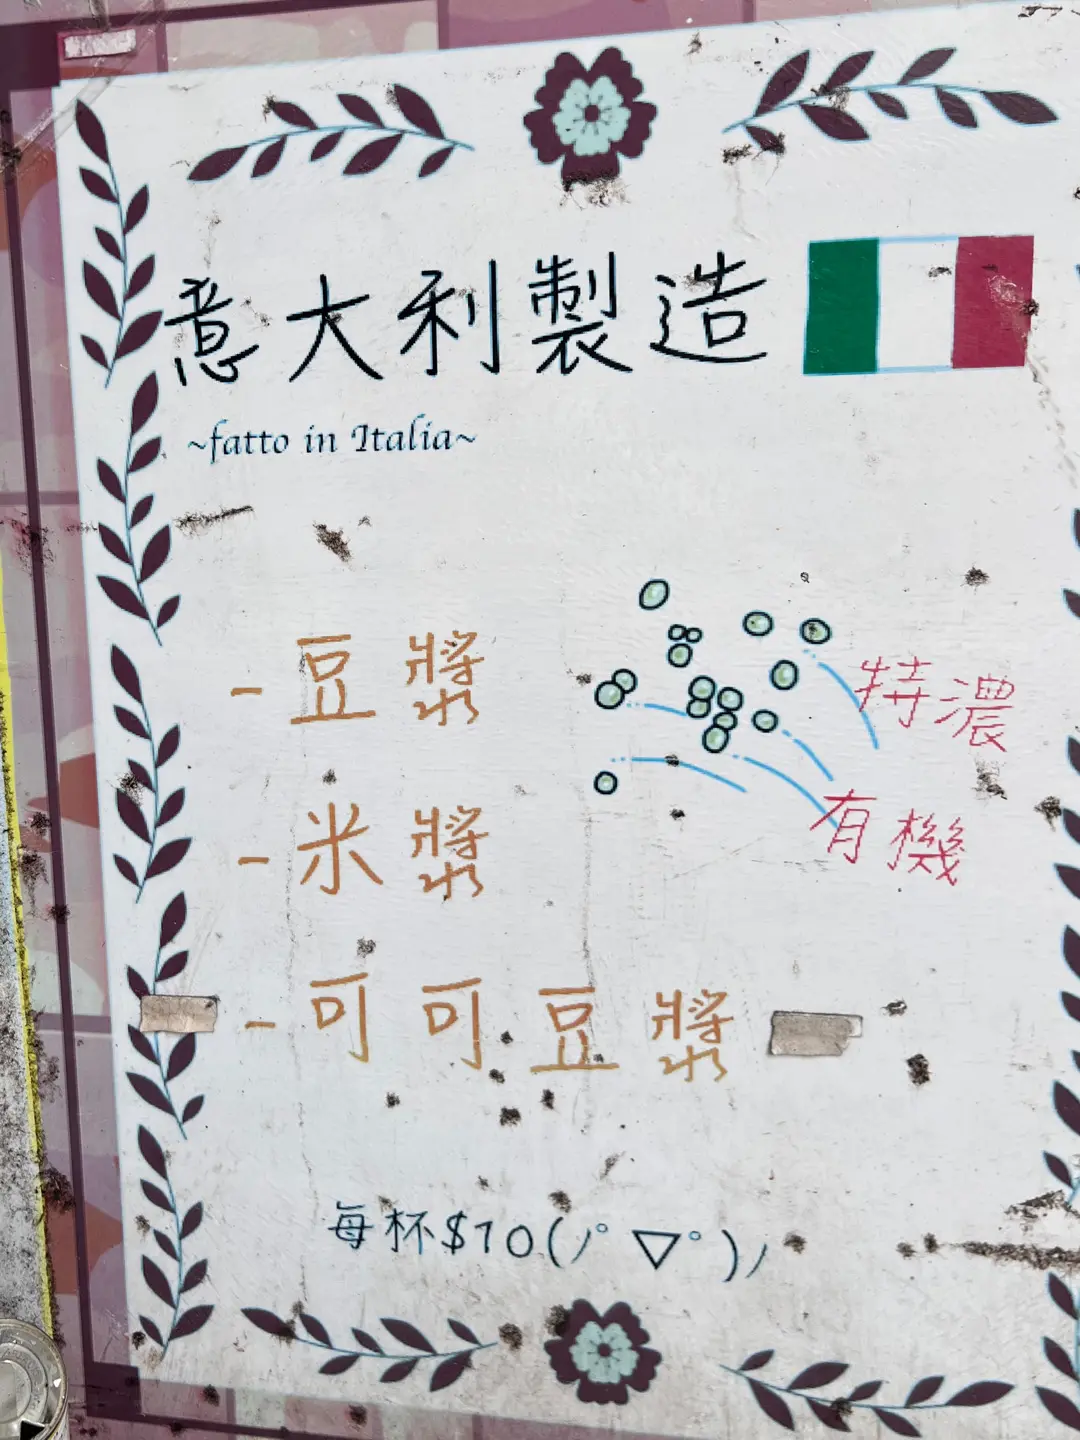 意大利製造
~fatto in Italia~
- 豆漿
特濃
有機
- 米漿
- 可可豆漿
每杯$10(ﾉﾟ▽ﾟ)ﾉ